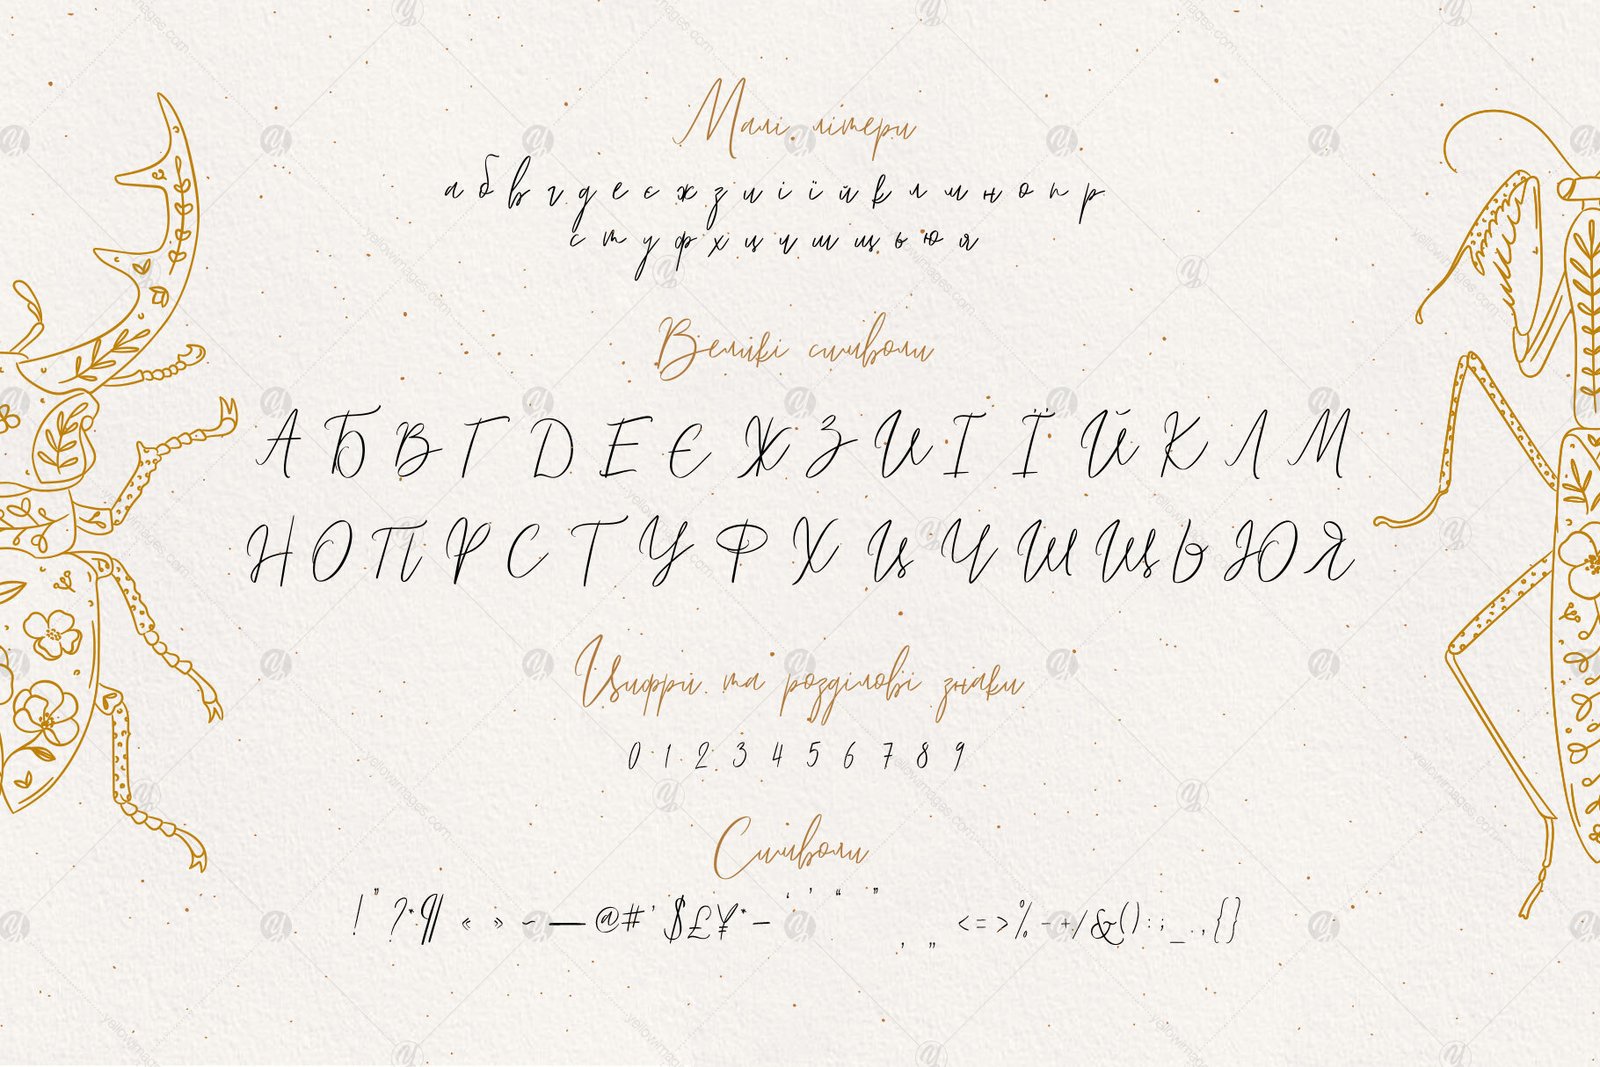 Малі літери
а б в г д е є ж з и і ї й к л м н о п р
с т у ф х ц ч ш щ ь ю я
Велікі символи
А Б В Г Д Е Є Ж З И І Ї Й К Л М
Н О П Р С Т У Ф Х Ц Ч Ш Щ Ь Ю Я
та розділові знаки
0 1 2 3 4 5 6 7 8 9
Символи
! " ? * ¶ « » – — @ # ' $ £ ¥ * – ‘ ’ “ ” , „ < = > % - + / & ( ) : ; _ . , { }